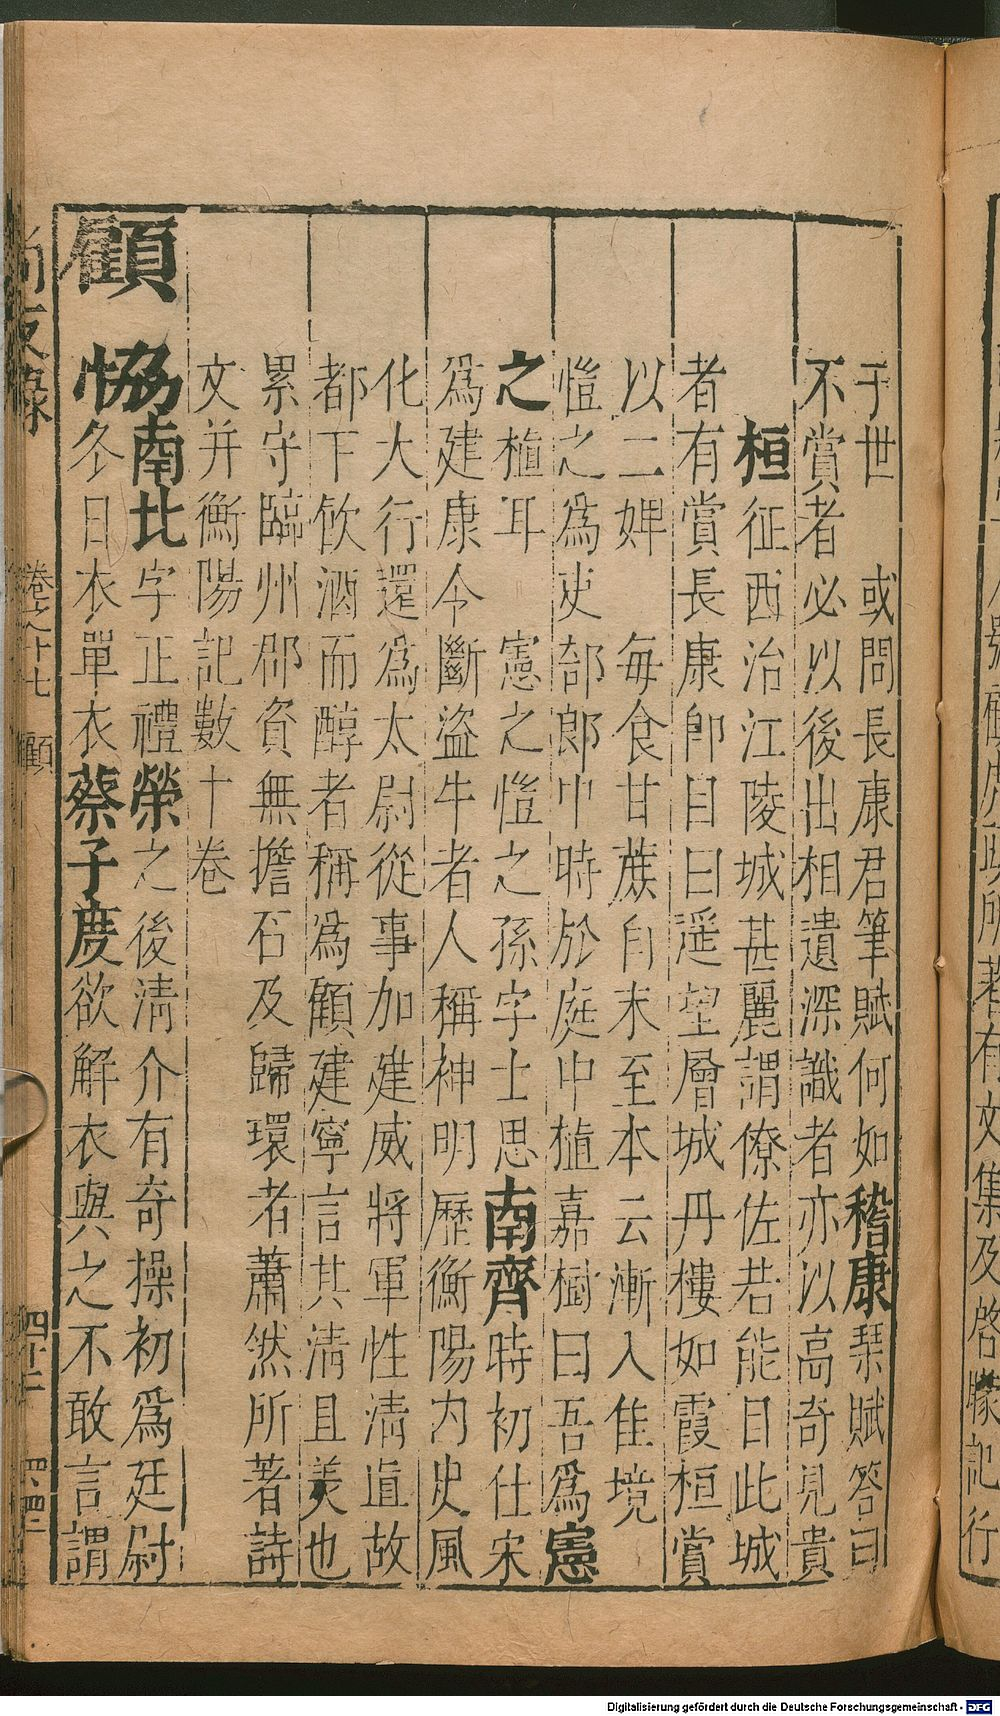 于世　或問長康君筆賦何如稽康琴賦答曰
不賞者必以後出相遺深識者亦以高奇見貴
桓征西治江陵城甚麗謂僚佐若能目此城
者有賞長康卽目曰遥望層城丹樓如霞桓賞
以二婢　每食甘蔗自末至本云漸入佳境
愷之為吏部郎中時於庭中植嘉樹曰吾爲憲
之植耳　憲之愷之孫字士思南齊時初仕宋
爲建康令斷盜牛者人稱神明歷衡陽內史風
化大行還爲太尉從事加建威將軍性清直故
都下飲酒而醇者稱爲顧建寧言其清且美也
累守臨州郡貧無擔石及歸環者蕭然所著詩
文并衡陽記數十卷
顧協南北字正禮榮之後清介有奇操初爲廷尉
冬日衣單衣蔡子度欲解衣與之不敢言謂
尚友錄　卷之十七　顧　四十二　四四
著有文集及啓矇記行
Digitalisierung gefördert durch die Deutsche Forschungsgemeinschaft - DFG